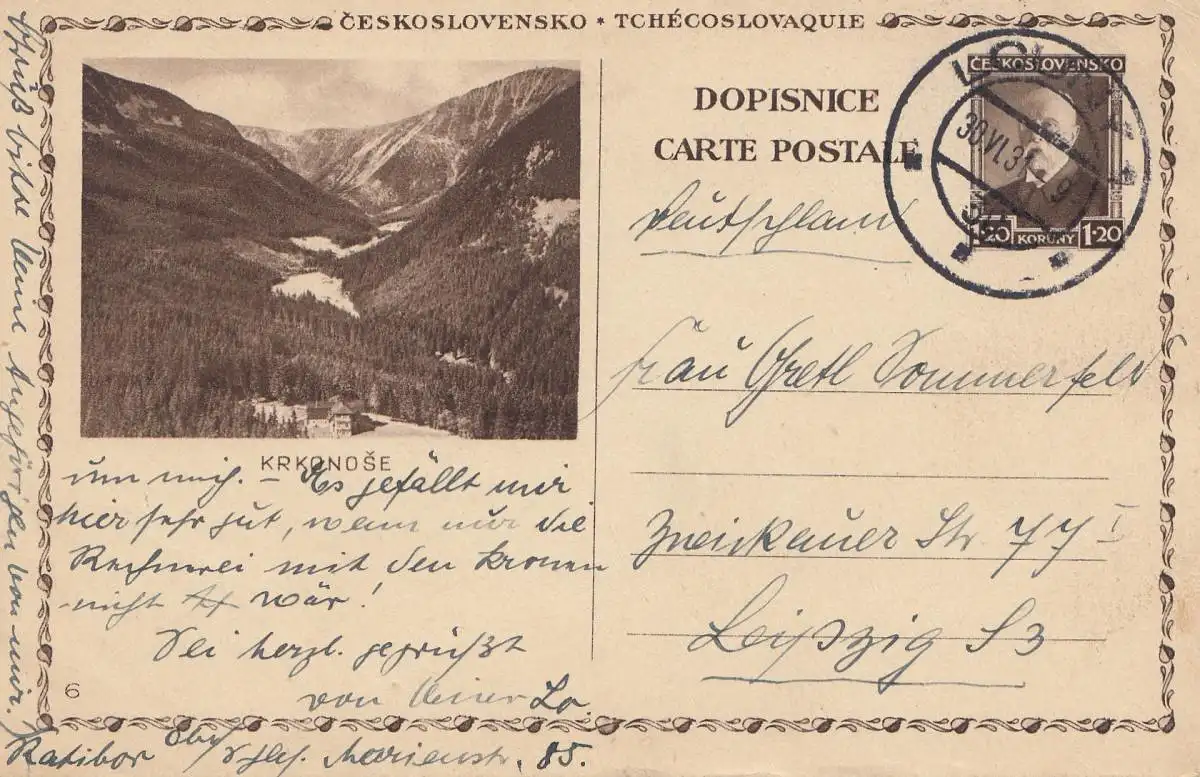 ČESKOSLOVENSKO * TCHÉCOSLOVAQUIE
DOPISNICE
CARTE POSTALE
ČESKOSLOVENSKO
1·20 KORUNY 1·20
30.VI.31
KRKONOŠE
Deutschland
Frau Gretl Sommerfeld
Zwickauer Str. 77 I
Leipzig S3
um mich. – Es gefällt mir
hier sehr gut, wenn nur die
Rechnerei mit den Kronen
nicht wär!
Sei herzl. gegrüßt
von Deiner Lo.
6
Ratibor Obs/Schles. Marienstr. 85.
Grüß bitte Deine Angehörigen von mir.